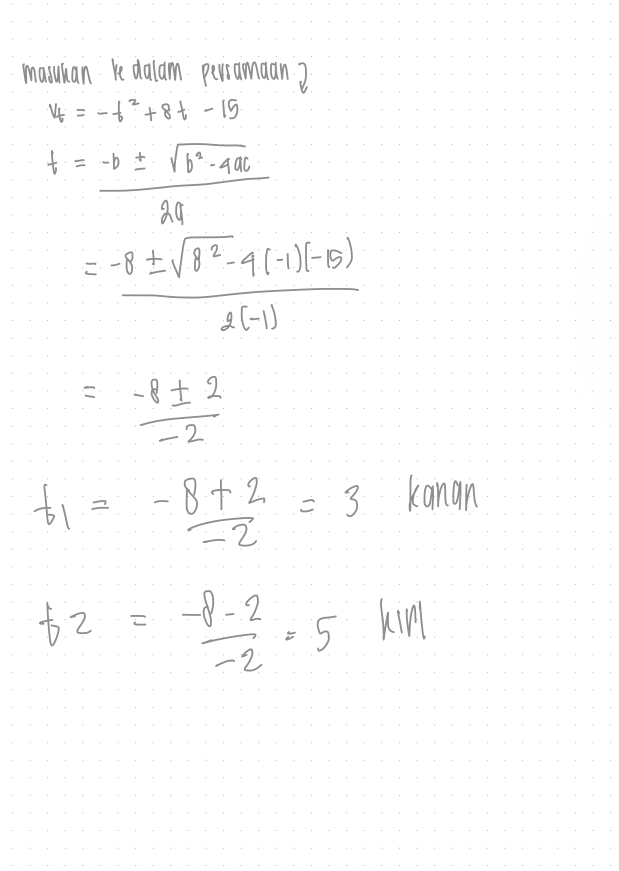 masukan ke dalam persamaan
Vt = -t² + 8t - 15
t = -b ± √b² - 4ac
2a
= -8 ± √8² - 4(-1)(-15)
2(-1)
= -8 ± 2
-2
t1 = -8 + 2 = 3 kanan
-2
t2 = -8 - 2 = 5 kiri
-2